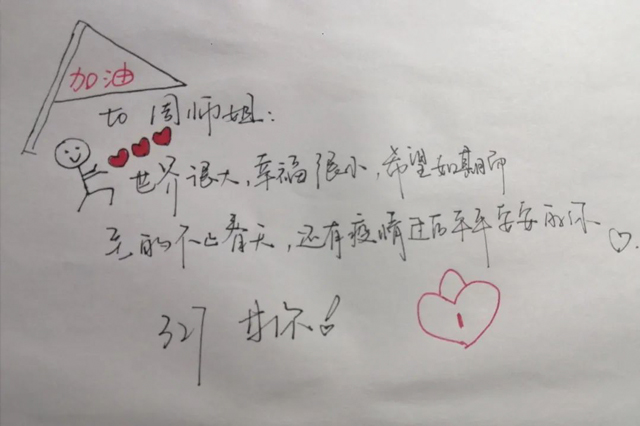 加油
to 周师姐:
世界很大,幸福很小,希望如期而
至的不止春天,还有疫情过后平平安安的你♡.
327 等你!